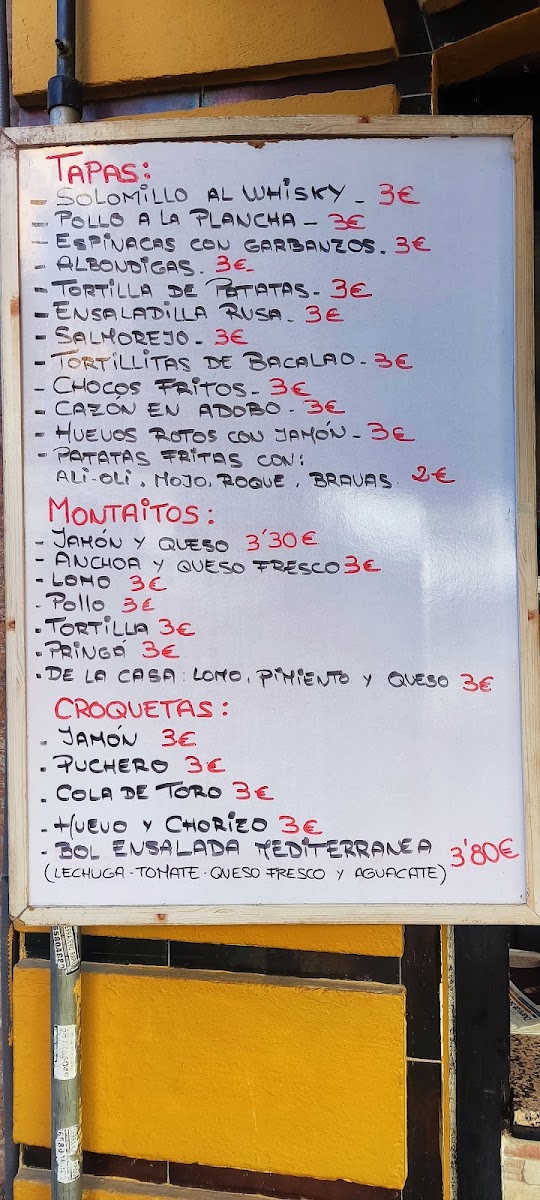 TAPAS:
- SOLOMILLO AL WHISKY - 3€
- POLLO A LA PLANCHA - 3€
- ESPINACAS CON GARBANZOS. 3€
- ALBONDIGAS. 3€
- TORTILLA DE PATATAS. 3€
- ENSALADILLA RUSA - 3€
- SALMOREJO - 3€
- TORTILLITAS DE BACALAO - 3€
- CHOCOS FRITOS - 3€
- CAZÓN EN ADOBO - 3€
- HUEVOS ROTOS CON JAMÓN - 3€
- PATATAS FRITAS CON:
ALI-OLI, MOJO, ROQUE, BRAVAS 2€
MONTAITOS:
- JAMÓN Y QUESO 3'30€
- ANCHOA Y QUESO FRESCO 3€
- LOMO 3€
- POLLO 3€
- TORTILLA 3€
- PRINGÁ 3€
- DE LA CASA: LOMO, PIMIENTO Y QUESO 3€
CROQUETAS:
- JAMÓN 3€
- PUCHERO 3€
- COLA DE TORO 3€
- HUEVO Y CHORIZO 3€
- BOL ENSALADA MEDITERRANEA 3'80€
(LECHUGA - TOMATE - QUESO FRESCO Y AGUACATE)